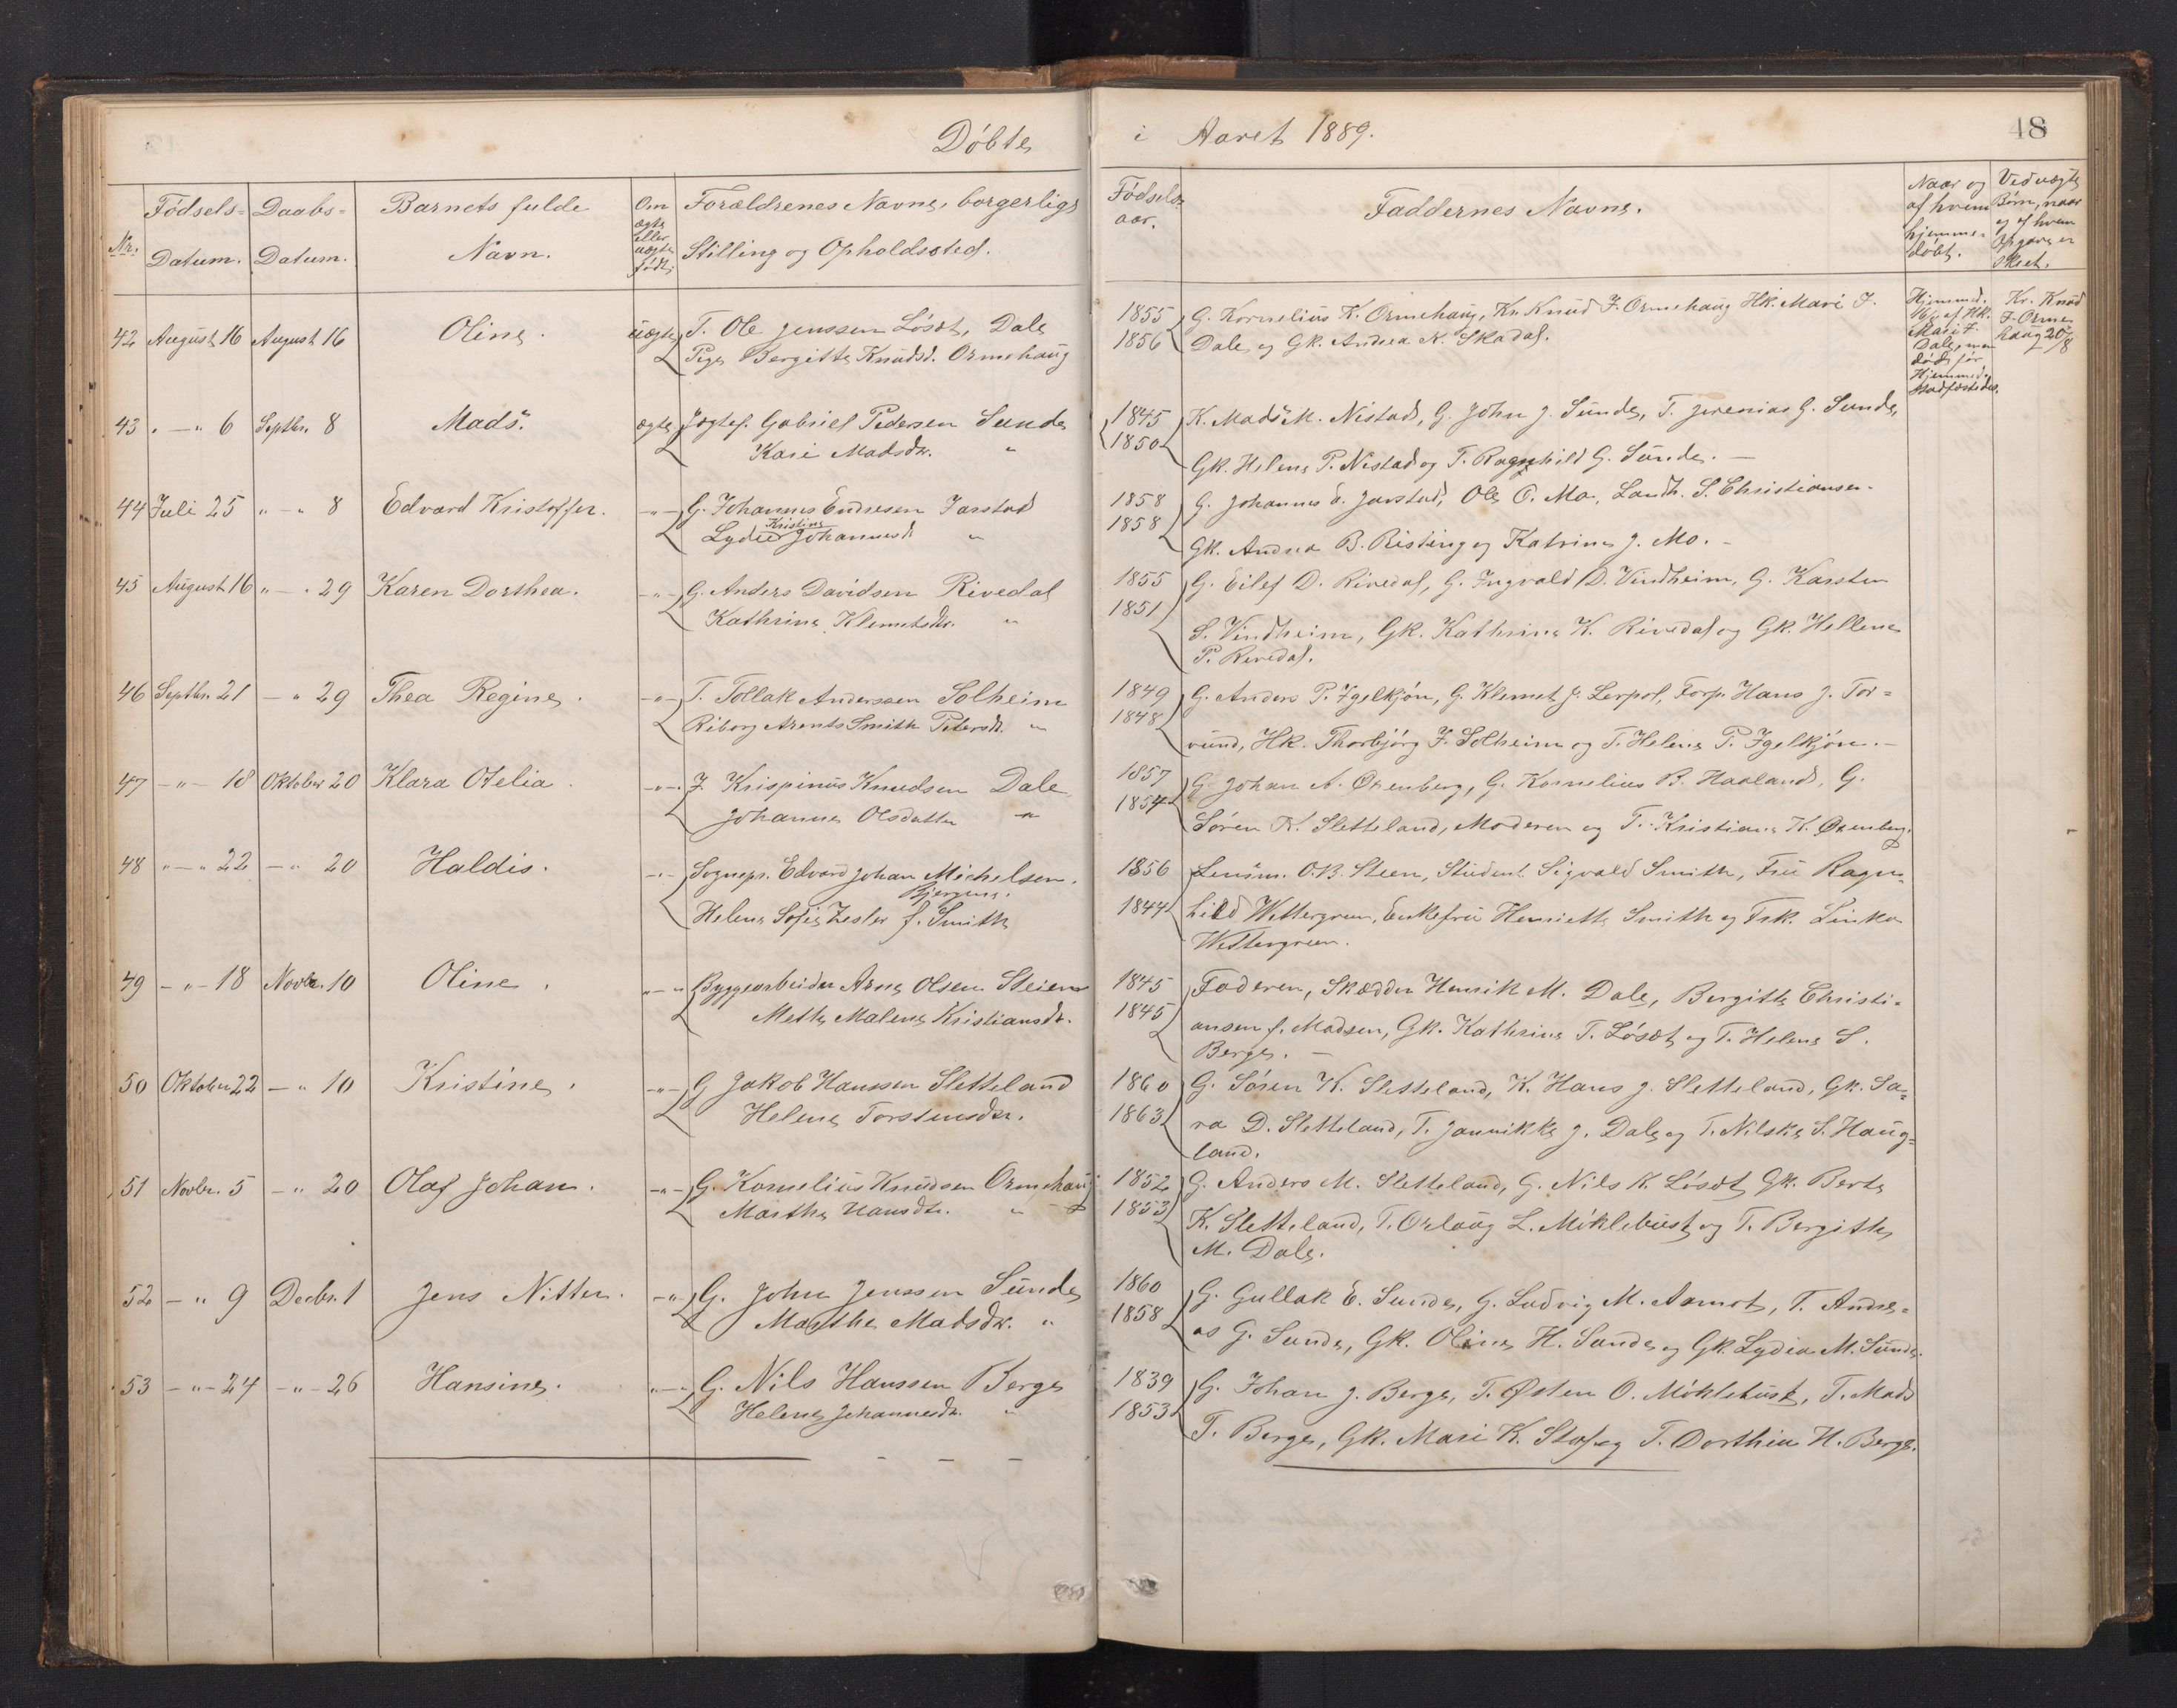 Døbte i Aaret 1889.
48
Nr.
Fødsels-
Datum.
Daabs-
Datum.
Barnets fulde
Navn.
Om
ægte
eller
uægte
født.
Forældrenes Navne, borgerlige
Stilling og Opholdssted.
Fødsels-
aar.
Faddernes Navne.
Naar og
af hvem
hjemme-
døbt.
Ved uægte
Børn, naar
og af hvem
Opgave er
skeet.
42 August 16 August 16 Oline. uægte T. Ole Jenssen Løset, Dale
Pige Bergitte Knudsd. Ormehaug
1855 G. Kornelius K. Ormehaug, Kr. Knud J. Ormehaug Hk. Mari J.
1856 Dale og Gk. Andrea N. Skadal.
Hjemmed.
af Hk.
Mari J.
Dale, men
døde før
Hjemmed.
stadfæstedes.
Kr. Knud
J. Orme-
haug 20/8
43 . — " 6 Septbr. 8 Mads. ægte Jægtef. Gabriel Pedersen Sunde
Kari Madsdr. "
1845 K. Mads M. Nistad, G. John J. Sunde, T. Jeremias G. Sunde,
1850 Gk. Helene P. Nistad og T. Ragnhild G. Sunde. —
44 Juli 25 " — " 8 Edvard Kristoffer. — " — G. Johannes Endresen Jarstad
Kristine
Lydie Johannesd. "
1858 G. Johannes E. Jarstad, Ole O. Mo, Landh. S. Christiansen
1858 Gk. Andrea B. Risting og Katrine J. Mo. —
45 August 16 " — " 29 Karen Dorthea. — " — G. Anders Davidsen Rivedal
Kathrine Klemetsdr. "
1855 G. Eilef D. Rivedal, G. Ingvald D. Vindheim, G. Karsten
1851 S. Vindheim, Gk. Kathrine K. Rivedal og Gk. Hellene
P. Rivedal.
46 Septbr. 21 — " 29 Thea Regine. — " — T. Tollak Anderssen Solheim
Riborg Arents Smith Petersd. "
1849 G. Anders P. Igelkjøn, G. Klemet J. Lerpol, Forp. Hans J. Tor-
1848 vund, Hk. Thorbjørg J. Solheim og T. Helene P. Igelkjøn. —
47 — " — 18 Oktober 20 Klara Otelia. — " — J. Krispinus Knudsen Dale
Johanne Olsdatter "
1857 G. Johan A. Øxenberg, G. Kornelius B. Haaland, G.
1854 Søren K. Sletteland, Moderen og T. Kristiane K. Øxenberg.
48 " — " 22 — " 20 Haldis. — " — Sognepr. Edvard Johan Michelsen
Helene Sofie f. Smith
1856 Lensm. O.B. Steen, Student Sigvald Smith, Fru Ragn-
1844 hild Wettergreen, Enkefru Henriette Smith og Frk. Linka
Wettergreen.
49 — " — 18 Novbr. 10 Oline. " — " Byggearbeider Arne Olsen Steien
Methe Malene Kristiansdr.
1845 Faderen, Skædder Henrik M. Dale, Bergitte Christi-
1845 ansen f. Madsen, Gk. Kathrine T. Løset og T. Helene S.
Berge. —
50 Oktober 22 — " 10 Kristine. — " — G. Jakob Hanssen Sletteland
Helene Torstensdr.
1860 G. Søren K. Sletteland, K. Hans J. Sletteland, Gk. Sa-
1863 ra D. Sletteland, T. Jannikke J. Dale og T. Nilske S. Haug-
land.
51 Novbr. 5 — " 20 Olaf Johan. — " — G. Kornelius Knudsen Ormehaug
Marthe Hansdtr. "
1852 G. Anders M. Sletteland, G. Nils K. Løset, Gk. Berte
1853 K. Sletteland, T. Orlaug L. Møklebust og T. Bergithe
M. Dale.
52 — " 9 Decbr. 1 Jens Nitter. — " — G. John Jenssen Sunde
Marthe Madsdr. "
1860 G. Gullak E. Sunde, G. Ludvig M. Aamot, T. Andre-
1858 as G. Sunde, Gk. Oline H. Sunde og Gk. Lydia M. Sunde.
53 — " — 24 — " — 26 Hansine. " — " G. Nils Hanssen Berge
Helene Johannesdr. "
1839 G. Johan J. Berge, T. Østen O. Møklebust, T. Mads
1853 T. Berge, Gk. Mari K. Staf og T. Dorthea H. Berge.